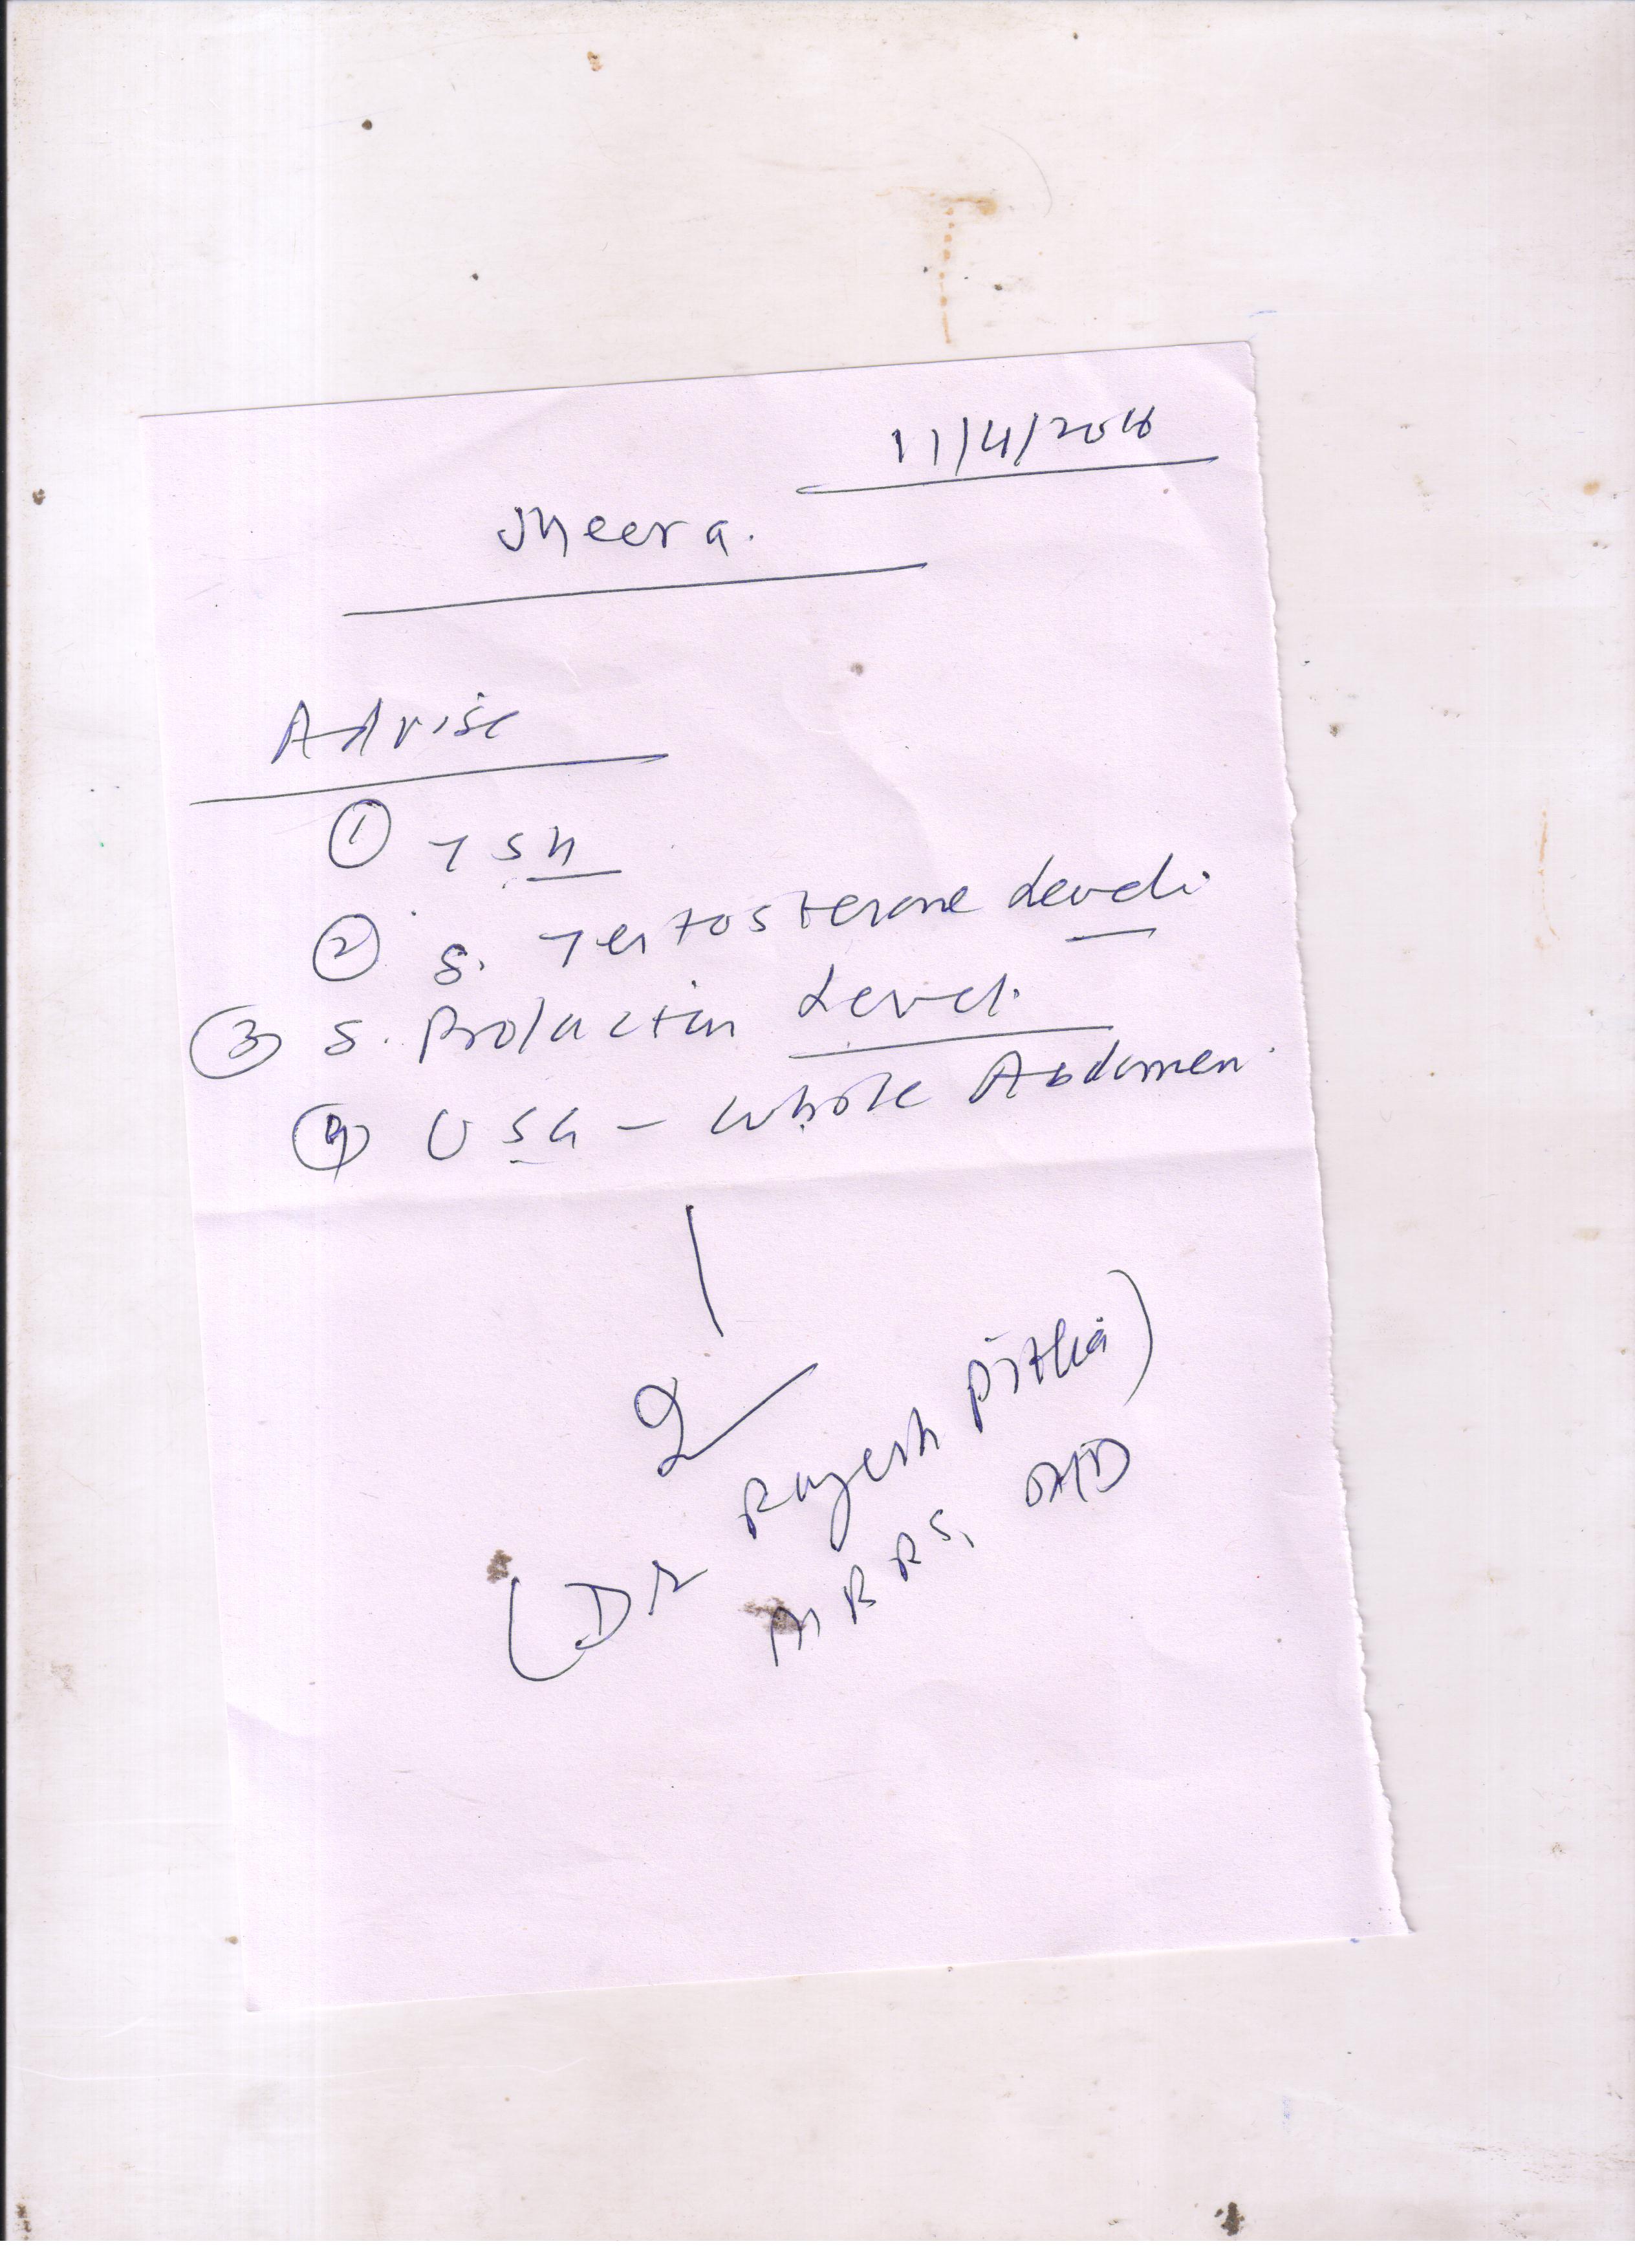 11/4/2016
Meera.
Advise
① TSH
② S. Testosterone Level.
③ S. Prolactin Level.
④ USG - Whole Abdomen.
(Dr Rajesh
MBBS, MD